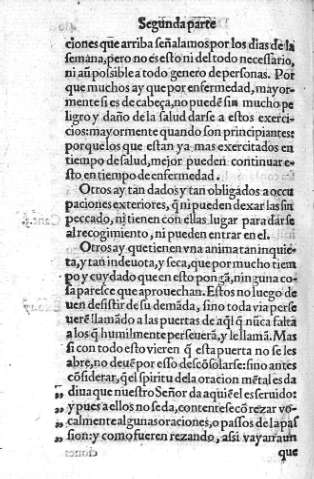 Segunda parte
ciones que arriba señalamos por los dias de la
semana, pero no es esto ni del todo necessario,
ni aũ possible a todo genero de personas. Por
que muchos ay que por enfermedad, mayor-
mente si es de cabeça, no puedẽ sin mucho pe
ligro y daño de la salud darse a estos exerci-
cios: mayormente quando son principiantes:
porque los que estan ya mas exercitados en
tiempo de salud, mejor pueden continuar e-
sto en tiempo de enfermedad.
Otros ay tan dados y tan obligados a occu
paciones exteriores, q̃ ni pueden dexar las sin
peccado, ni tienen con ellas lugar para darse
al recogimiento, ni pueden entrar en el.
Otros ay que tienen vna anima tan inquie
ta, y tan indeuota, y seca, que por mucho tiem
po y cuydado que en esto pongã, ninguna co-
sa paresce que aprouechan. Estos no luego de
uen desistir de su demãda, sino toda via perse
uerẽ llamãdo a las puertas de aq̃l q̃ nũca falta
a los q̃ humilmente perseuerã, y le llamã. Mas
si con todo esto vieren q̃ esta puerta no se les
abre, no deuẽ por esso descõsolarse: sino antes
cõsiderar, q̃ el spiritu de la oracion mẽtal es da
diua que nuestro Señor da aquiẽ el es seruido:
y pues a ellos no se da, contentese cõ rezar vo-
calmente algunas oraciones, o passos de la pas
sion: y como fueren rezando, assi vayan aun
que